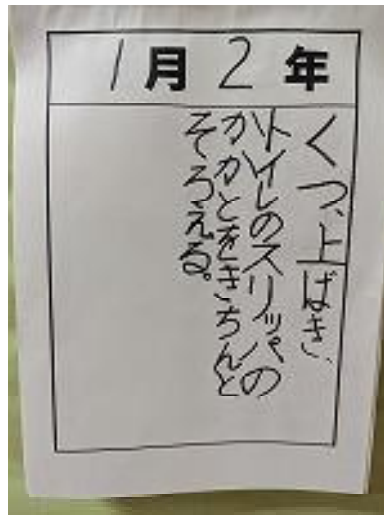 1月2年
くつ、上ばき、
トイレのスリッパの
かかとをきちんと
そろえる。